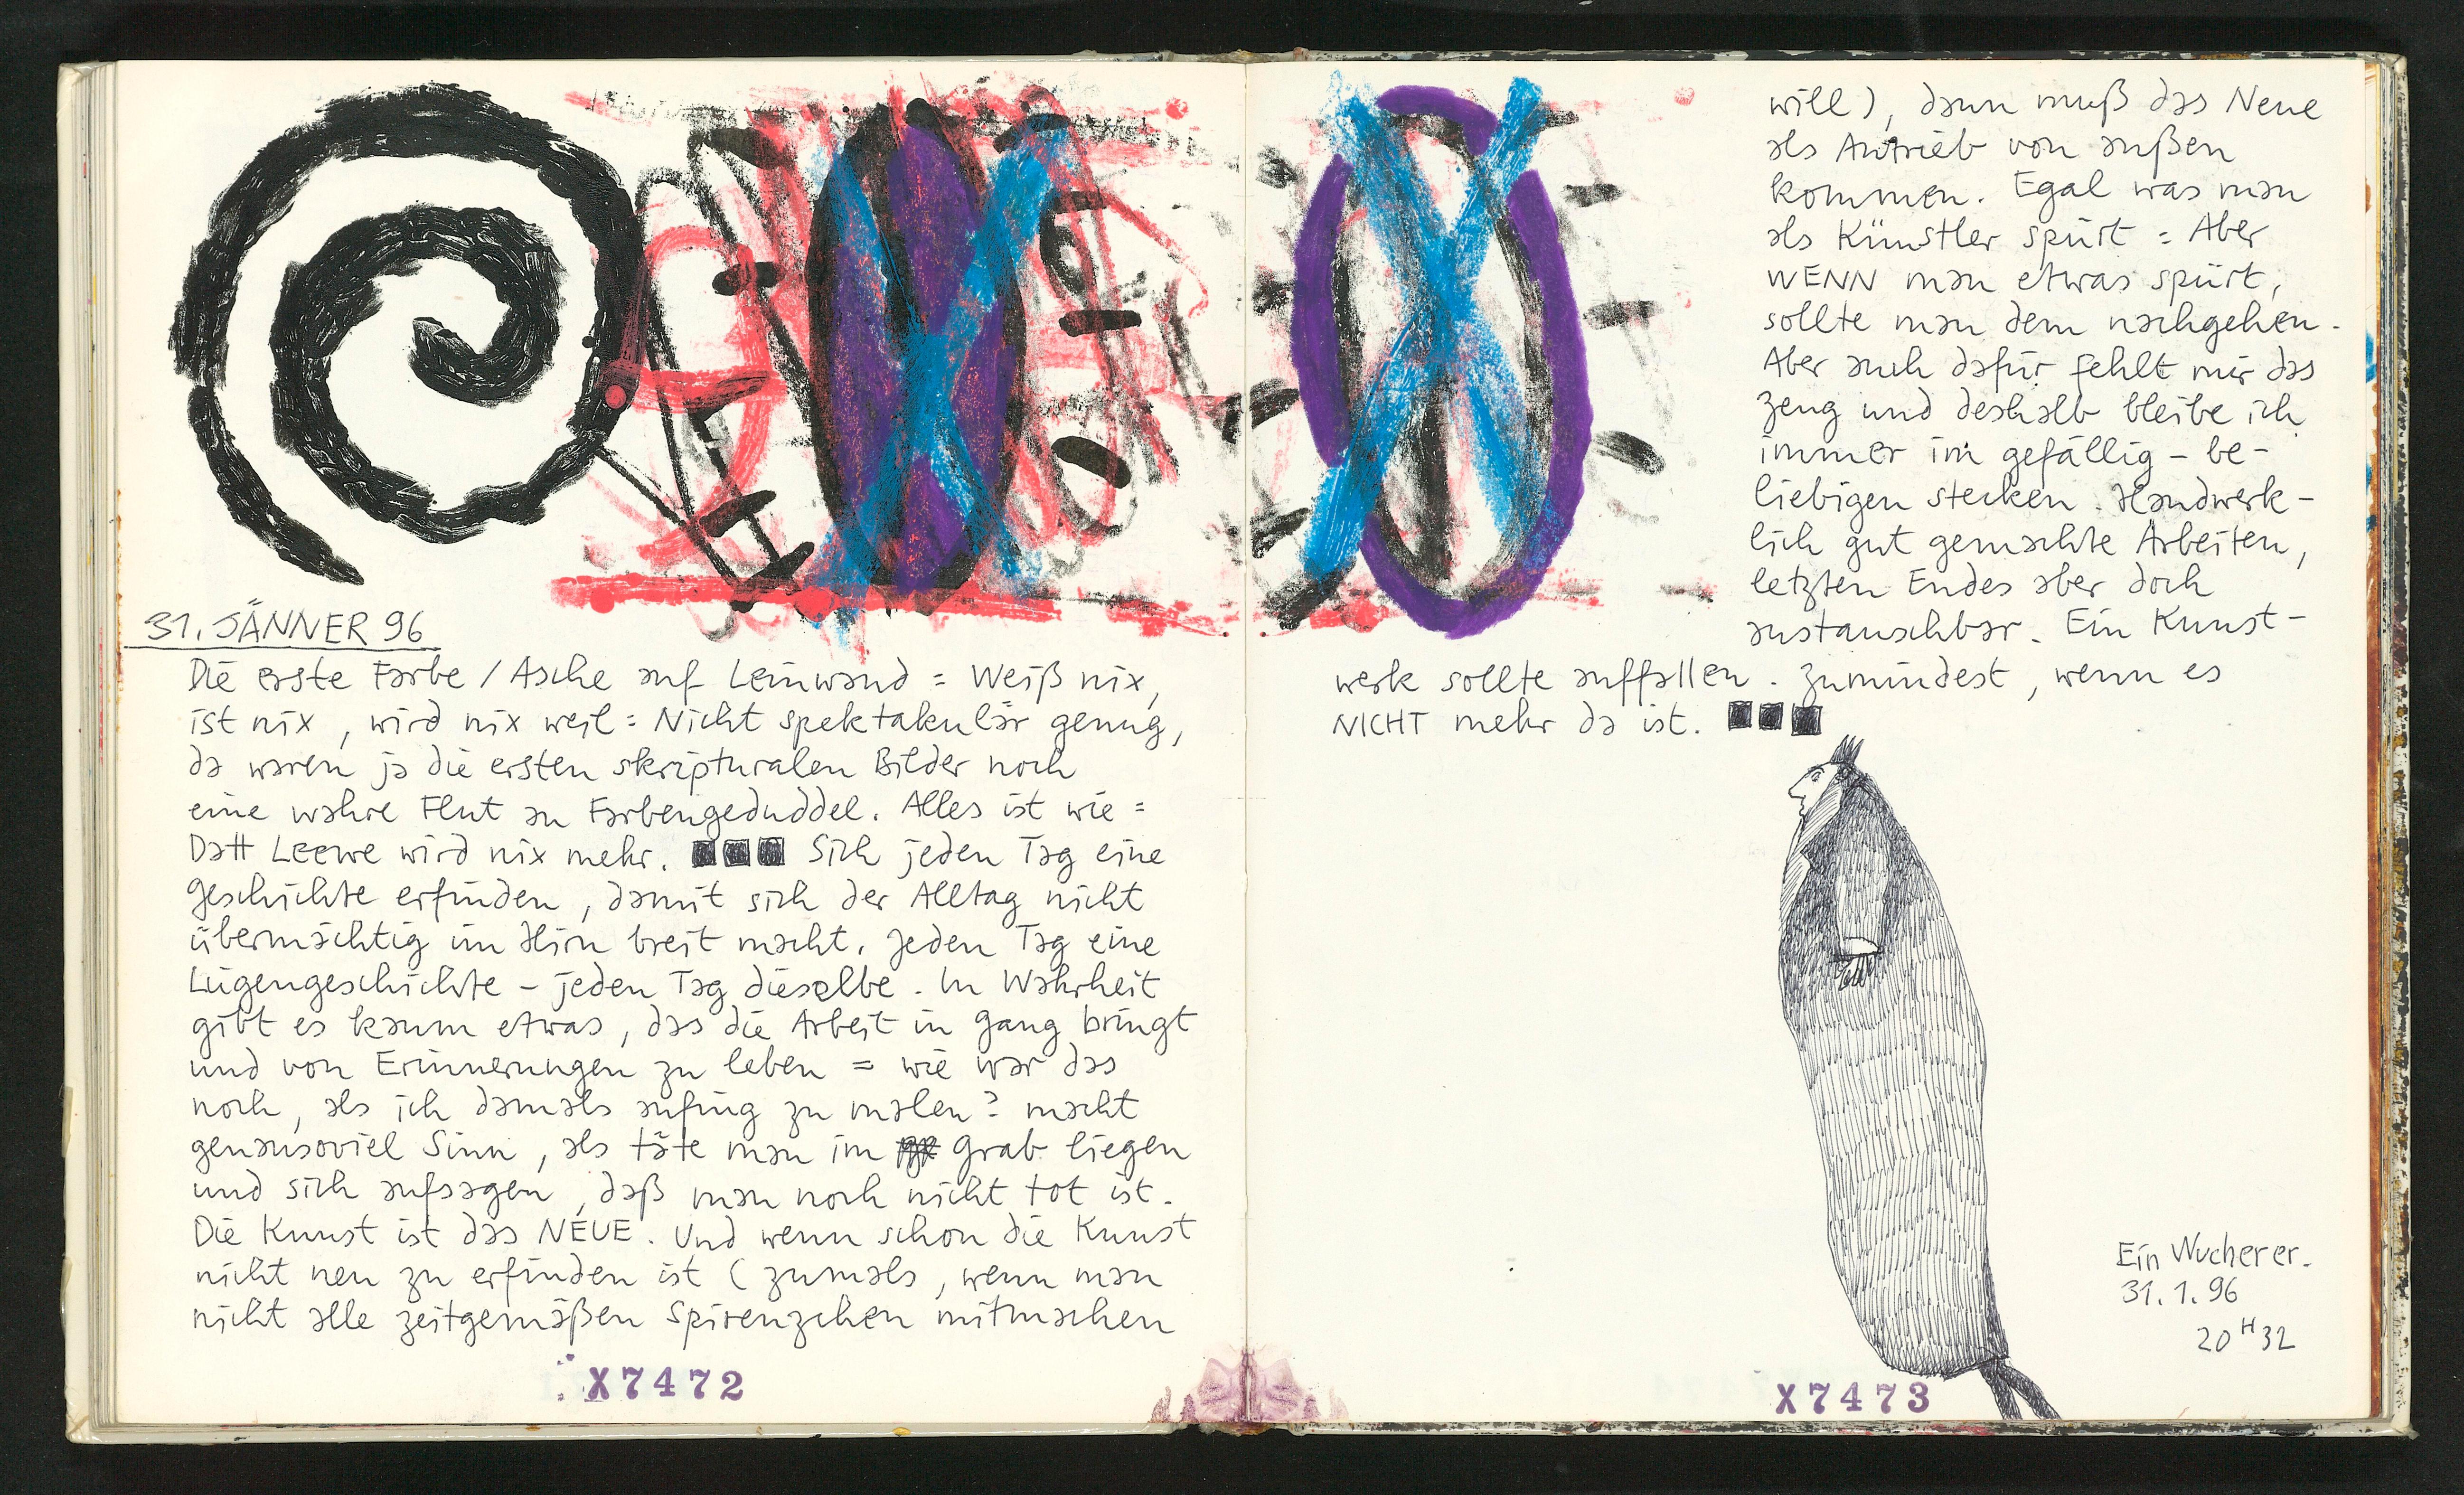 31. JÄNNER 96
Die erste Farbe / Asche auf Leinwand = Weiß nix,
ist nix, wird nix weil = Nicht spektakulär genug,
da waren ja die ersten skripturalen Bilder noch
eine wahre Flut an Farbengeduddel. Alles ist wie =
Datt Leewe wird nix mehr. ■■■ Sich jeden Tag eine
Geschichte erfinden, damit sich der Alltag nicht
übermächtig im Hirn breit macht. Jeden Tag eine
Lügengeschichte – jeden Tag dieselbe. In Wahrheit
gibt es kaum etwas, das die Arbeit in Gang bringt
und von Erinnerungen zu leben = wie war das
noch, als ich damals anfing zu malen? macht
genausoviel Sinn, als täte man im Grab liegen
und sich aufsagen, daß man noch nicht tot ist.
Die Kunst ist das NEUE. Und wenn schon die Kunst
nicht neu zu erfinden ist (zumals, wenn man
nicht alle zeitgemäßen Spirenzchen mitmachen
X7472
will), dann muß das Neue
als Antrieb von außen
kommen. Egal was man
als Künstler spürt = Aber
WENN man etwas spürt,
sollte man dem nachgehen.
Aber auch dafür fehlt mir das
Zeug und deshalb bleibe ich
immer im gefällig – be-
liebigen stecken. Handwerk-
lich gut gemachte Arbeiten,
letzten Endes aber doch
austauschbar. Ein Kunst-
werk sollte auffallen. Zumindest, wenn es
NICHT mehr da ist. ■■■
Ein Wucherer.
31. 1. 96
20 H 32
X7473